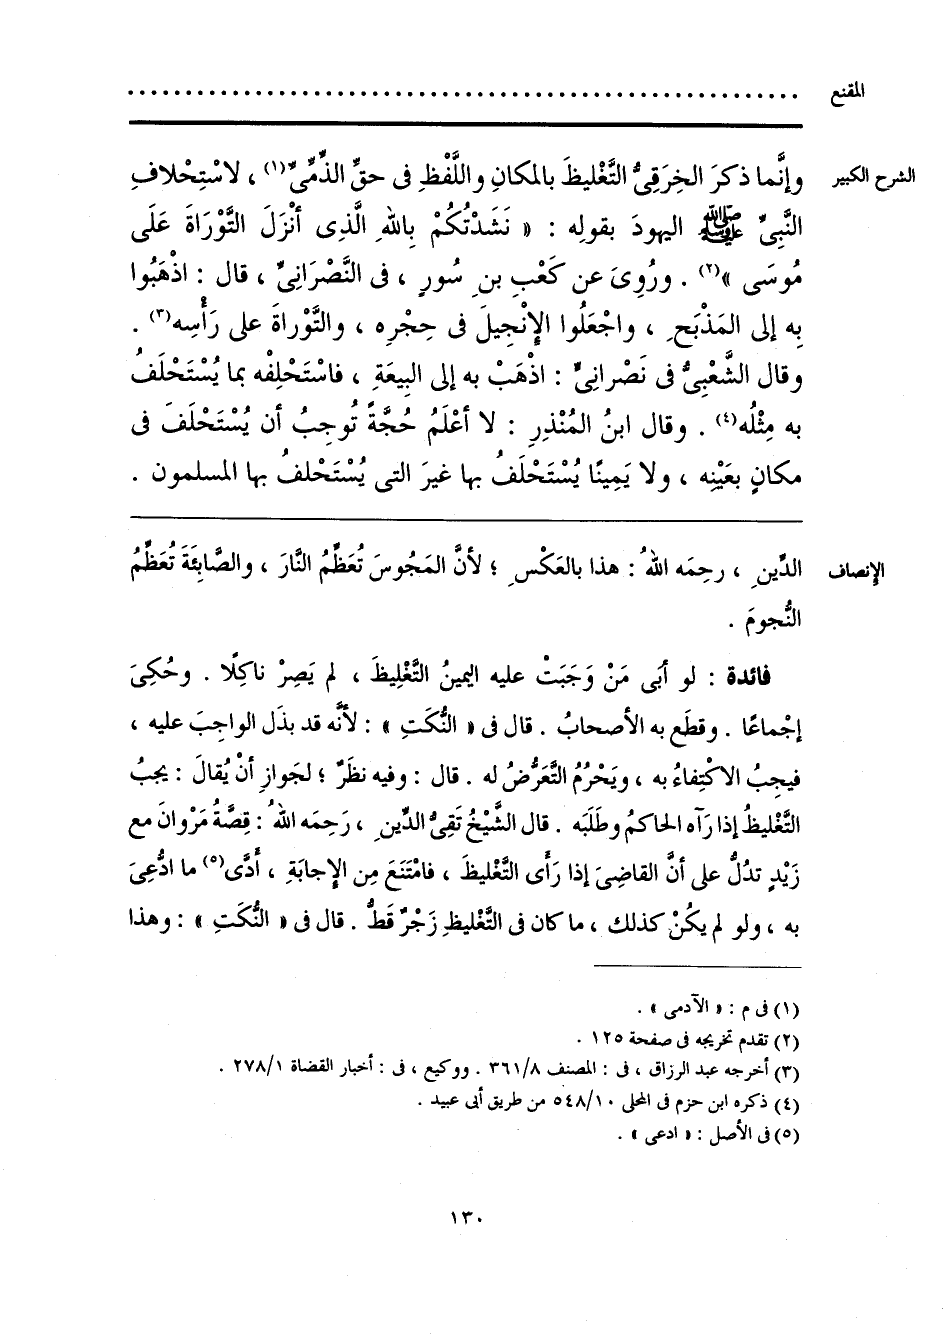 المقنع ........................................................
الشرح الكبير وإنَّما ذكرَ الخِرَقِىُّ التَّغْليظَ بالمكانِ واللَّفْظِ فى حقِّ الذِّمِّىِّ(١) ، لاسْتِحْلافِ
النَّبِىِّ ﷺ اليهودَ بقولِه : « نَشَدْتُكُمْ بِاللهِ الَّذِى أنْزَلَ التَّوْرَاةَ عَلَى
مُوسَى »(٢) . ورُوِىَ عن كَعْبِ بنِ سُورٍ ، فى النَّصْرَانِىِّ ، قال : اذْهَبُوا
بِه إلى المَذْبَحِ ، واجْعَلُوا الإِنْجِيلَ فى حِجْرِه ، والتَّوْراةَ على رَأْسِه(٣) .
وقال الشَّعْبِىُّ فى نَصْرانِىٍّ : اذْهَبْ به إلى البِيعَةِ ، فاسْتَحْلِفْه بما يُسْتَحْلَفُ
به مِثْلُه(٤) . وقال ابنُ المُنْذِرِ : لا أعْلَمُ حُجَّةً تُوجِبُ أن يُسْتَحْلَفَ فى
مكانٍ بعَيْنِه ، ولا يَمِينًا يُسْتَحْلَفُ بها غيرَ التى يُسْتَحْلفُ بها المسلمون .
الإنصاف الدِّينِ ، رحِمَه اللهُ : هذا بالعَكْسِ ؛ لأنَّ المَجُوسَ تُعَظِّمُ النَّارَ ، والصَّابِئَةَ تُعَظِّمُ
النُّجومَ .
فائدة : لو أبَى مَنْ وَجَبَتْ عليه اليمينُ التَّغْلِيظَ ، لم يَصِرْ ناكِلًا . وحُكِىَ
إجْماعًا . وقطَع به الأصحابُ . قال فى « النُّكَتِ » : لأنَّه قد بذَل الواجِبَ عليه ،
فيجبُ الاكْتِفاءُ به ، ويَحْرُمُ التَّعَرُّضُ له . قال : وفيه نظَرٌ ؛ لجَوازِ أنْ يُقالَ : يجبُ
التَّغْليظُ إذا رَآه الحاكمُ وطلَبَه . قال الشَّيْخُ تَقِىُّ الدِّينِ ، رَحِمَه اللهُ : قِصَّةُ مَرْوانَ مع
زَيْدٍ تدُلُّ على أنَّ القاضِىَ إذا رأَى التَّغْليظَ ، فامْتَنَعَ مِن الإِجابَةِ ، أدَّى(٥) ما ادُّعِىَ
به ، ولو لم يكُنْ كذلك ، ما كان فى التَّغْليظِ زَجْرٌ قطُّ . قال فى « النُّكَتِ » : وهذا
(١) فى م : « الآدمى » .
(٢) تقدم تخريجه فى صفحة ١٢٥ .
(٣) أخرجه عبد الرزاق ، فى : المصنف ٣٦١/٨ . ووكيع ، فى : أخبار القضاة ٢٧٨/١ .
(٤) ذكره ابن حزم فى المحلى ٥٤٨/١٠ من طريق أبى عبيد .
(٥) فى الأصل : « ادعى » .
١٣٠